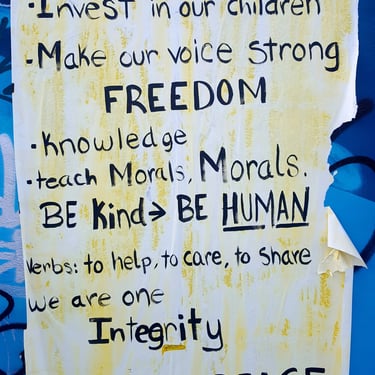 ·Invest in our children
·Make our voice strong
FREEDOM
·Knowledge
·teach Morals, Morals.
BE Kind→ BE HUMAN
Verbs: to help, to care, to share
we are one
Integrity